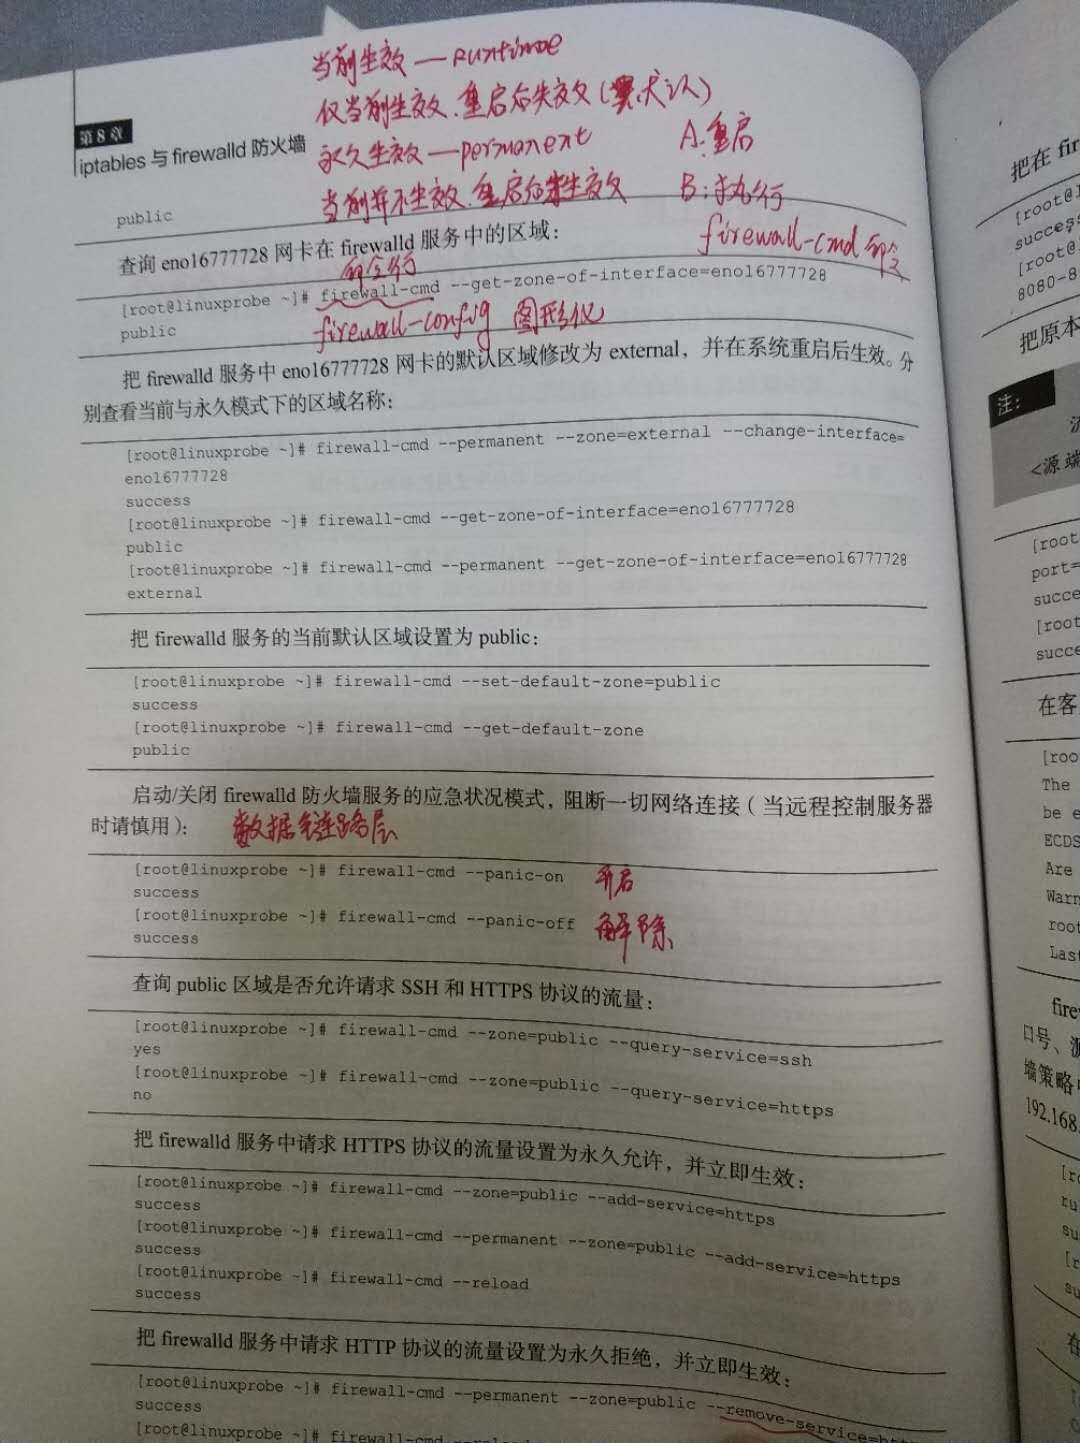 当前生效 — runtime
仅当前生效、重启后失效(默认)
永久生效 — permanent
当前并不生效、重启后生效
A:重启
B:执行
firewall-cmd 命令
第 8 章
iptables 与 firewalld 防火墙
public
查询 eno16777728 网卡在 firewalld 服务中的区域：
命令行
[root@linuxprobe ~]# firewall-cmd --get-zone-of-interface=eno16777728
public
firewall-config 图形化
把 firewalld 服务中 eno16777728 网卡的默认区域修改为 external，并在系统重启后生效。分
别查看当前与永久模式下的区域名称：
[root@linuxprobe ~]# firewall-cmd --permanent --zone=external --change-interface=
eno16777728
success
[root@linuxprobe ~]# firewall-cmd --get-zone-of-interface=eno16777728
public
[root@linuxprobe ~]# firewall-cmd --permanent --get-zone-of-interface=eno16777728
external
把 firewalld 服务的当前默认区域设置为 public：
[root@linuxprobe ~]# firewall-cmd --set-default-zone=public
success
[root@linuxprobe ~]# firewall-cmd --get-default-zone
public
启动/关闭 firewalld 防火墙服务的应急状况模式，阻断一切网络连接（当远程控制服务器
时请慎用）：
数据链路层
[root@linuxprobe ~]# firewall-cmd --panic-on 开启
success
[root@linuxprobe ~]# firewall-cmd --panic-off 解除
success
查询 public 区域是否允许请求 SSH 和 HTTPS 协议的流量：
[root@linuxprobe ~]# firewall-cmd --zone=public --query-service=ssh
yes
[root@linuxprobe ~]# firewall-cmd --zone=public --query-service=https
no
把 firewalld 服务中请求 HTTPS 协议的流量设置为永久允许，并立即生效：
[root@linuxprobe ~]# firewall-cmd --zone=public --add-service=https
success
[root@linuxprobe ~]# firewall-cmd --permanent --zone=public --add-service=https
success
[root@linuxprobe ~]# firewall-cmd --reload
success
把 firewalld 服务中请求 HTTP 协议的流量设置为永久拒绝，并立即生效：
[root@linuxprobe ~]# firewall-cmd --permanent --zone=public --remove-service=htt
success
[root@linuxprobe ~]# firewall-cmd
把在 fir
[root@l
success
[root@
8080-8
把原本
注：
<源端
[root
port=
succe
[root
succe
在客
[roo
The
be e
ECDS
Are
Warn
root
Las
fire
口号、源
墙策略
192.168.
[ro
ru
su
[r
su
在